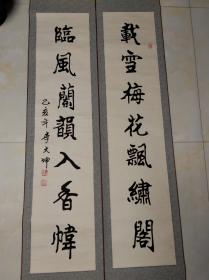 載雪梅花飄繡閣
臨風蘭韻入香幃
己亥年李大坤